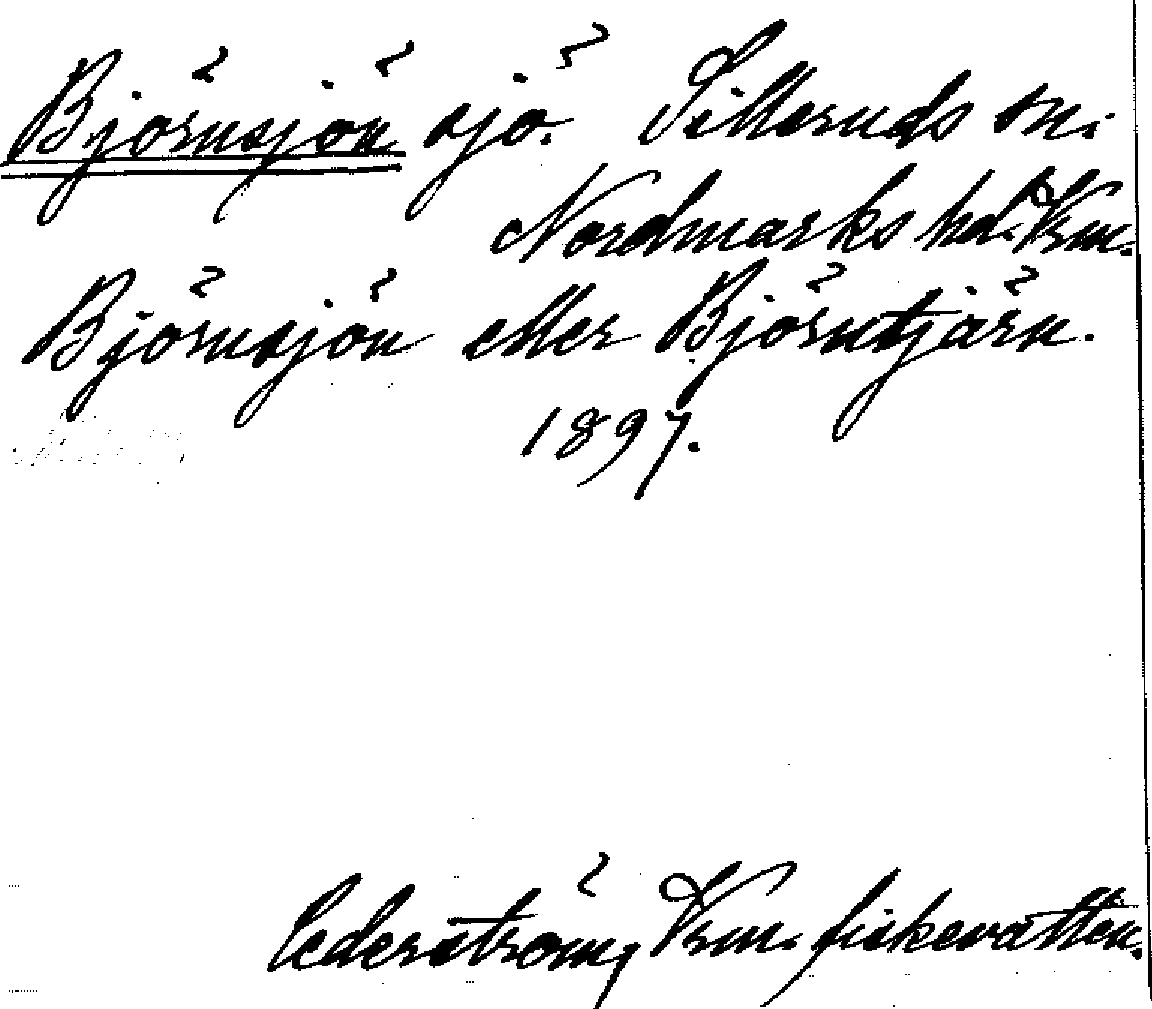 Björnsjön sjö. Silleruds sn.
Nordmarks hd. Vrm.
Björnsjön eller Björntjärn.
1897.
Cederström, Vrm. fiskevatten.